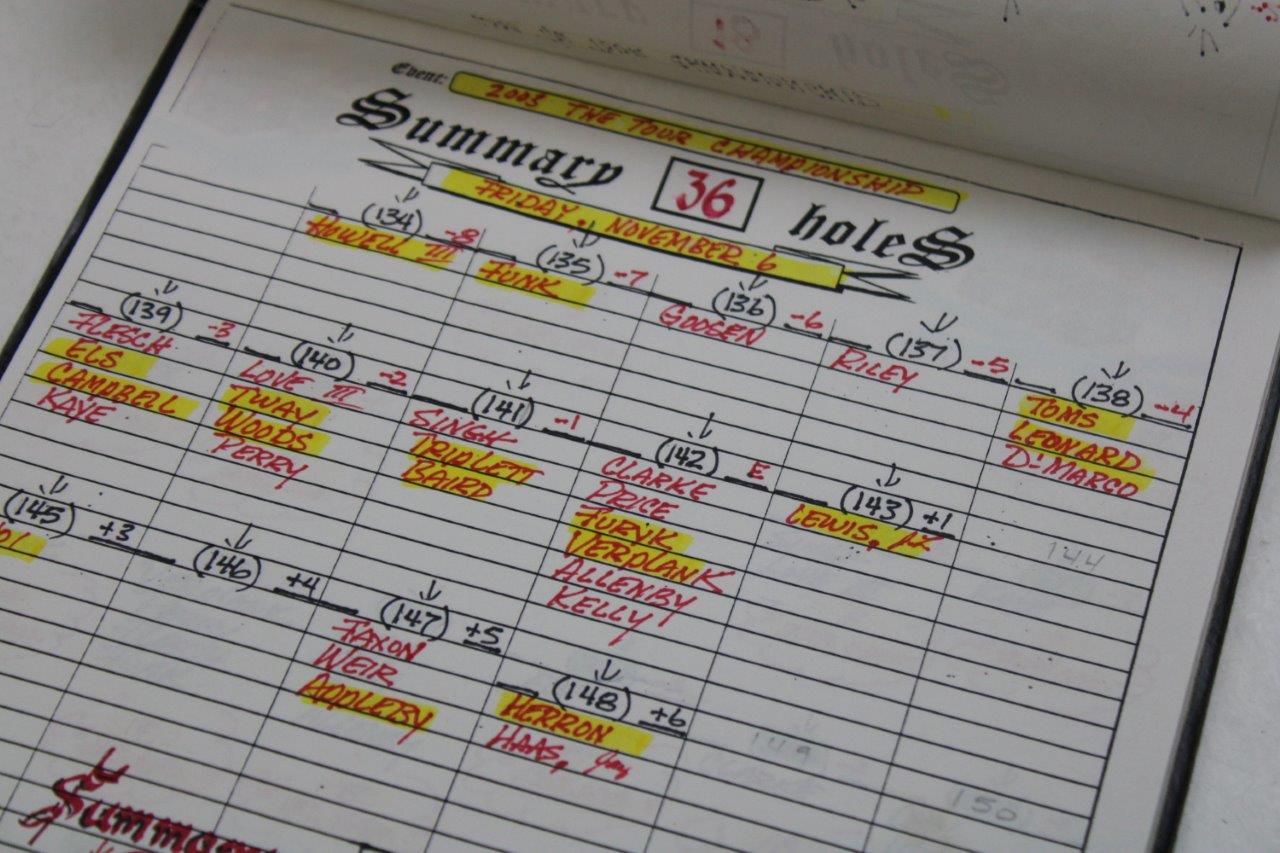 Event: 2003 THE TOUR CHAMPIONSHIP
Summary 36 holeS
FRIDAY, NOVEMBER 6
(134) -8
HOWELL III
(135) -7
FUNK
(136) -6
GOOSEN
(137) -5
RILEY
(138) -4
TOMS
LEONARD
DiMARCO
(139) -3
FLESCH
ELS
CAMPBELL
KAYE
(140) -2
LOVE III
TWAY
WOODS
PERRY
(141) -1
SINGH
TRIPLETT
BAIRD
(142) E
CLARKE
PRICE
FURYK
VERPLANK
ALLENBY
KELLY
(143) +1
LEWIS, JL
144
(145) +3
(146) +4
(147) +5
FAXON
WEIR
APPLEBY
(148) +6
HERRON
HAAS, Jay
149
150
Summar